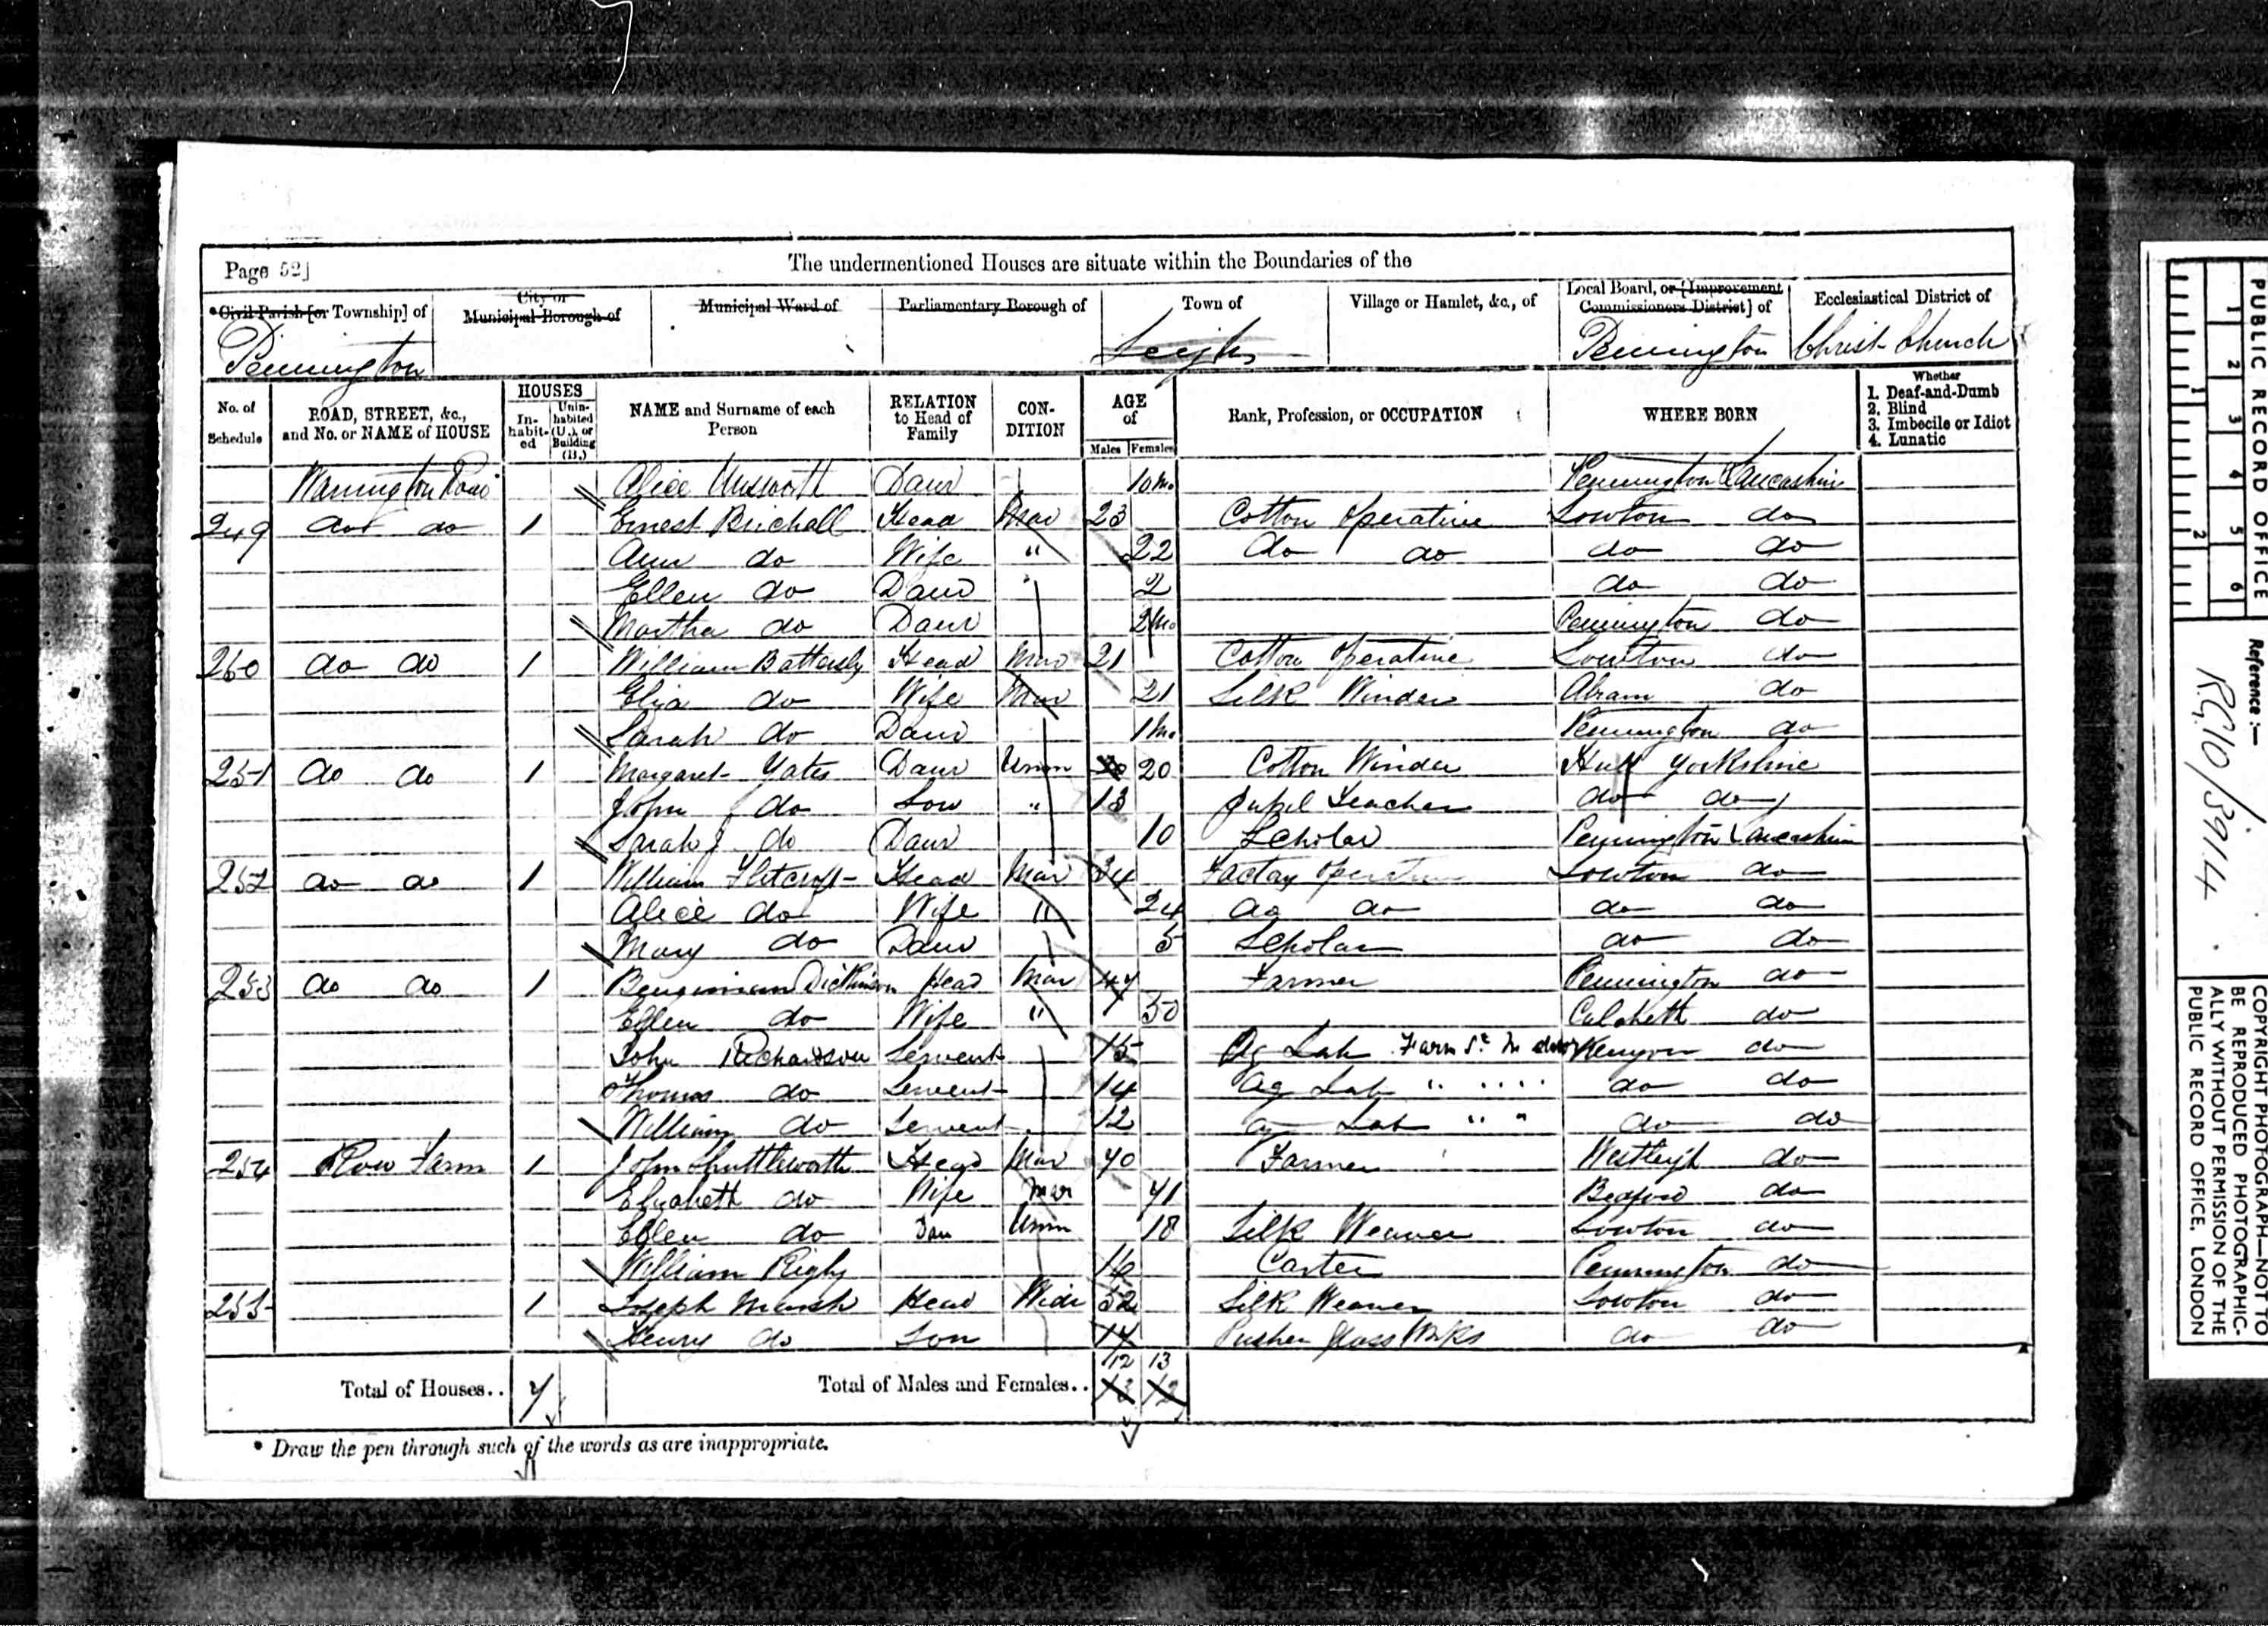 Page 52]
The undermentioned Houses are situate within the Boundaries of the
*Civil Parish [or Township] of
City or Municipal Borough of
Municipal Ward of
Parliamentary Borough of
Town of
Village or Hamlet, &c., of
Local Board, or [Improvement Commissioners District] of
Ecclesiastical District of
Pennington Leigh Pennington Christ Church
No. of Schedule
ROAD, STREET, &c., and No. or NAME of HOUSE
HOUSES
In-habit-ed
Unin-habited (U.), or Building (B.)
NAME and Surname of each Person
RELATION to Head of Family
CON-DITION
AGE of
Males Females
Rank, Profession, or OCCUPATION
WHERE BORN
Whether
1. Deaf-and-Dumb
2. Blind
3. Imbecile or Idiot
4. Lunatic
Warrington Road Alice Unsworth Daur 10 Mo Pennington Lancashire
249 do do 1 Ernest Birchall Head Mar 23 Cotton Operative Lowton do
Ann do Wife " 22 do do do do
Ellen do Daur " 2 do do
Martha do Daur 2 Mo Pennington do
250 do do 1 William Battersby Head Mar 21 Cotton Operative Lowton do
Eliza do Wife Mar 21 Silk Winder Abram do
Sarah do Daur 1 Mo Pennington do
251 do do 1 Margaret Yates Daur Unm 20 Cotton Winder Hull Yorkshire
John do Son " 13 Pupil Teacher do do
Sarah J do Daur 10 Scholar Pennington Lancashire
252 do do 1 William Flitcroft Head Mar 34 Factory Operative Lowton do
Alice do Wife " 24 do do do do
Mary do Daur 5 Scholar do do
253 do do 1 Bengiman Dickinson Head Mar 47 Farmer Pennington do
Ellen do Wife " 50 Culcheth do
John Richardson Servent 15 Ag Lab Farm St In door Kenyon do
Thomas do Servent 14 Ag Lab " " do do
William do Servent 12 Ag Lab " " do do
254 Row Farm 1 John Shuttleworth Head Mar 40 Farmer Westleigh do
Elizabeth do Wife Mar 41 Bedford do
Ellen do Dau Unm 18 Silk Weaver Lowton do
William Rigby 16 Carter Pennington do
255 1 Joseph Marsh Head Widr 52 Silk Weaver Lowton do
Henry do Son 14 Pusher Glass Works do do
12 13
Total of Houses.. 7 Total of Males and Females.. 13 12
* Draw the pen through such of the words as are inappropriate.
PUBLIC RECORD OFFICE
1 2 3 4 5 6
1 2
Reference:-
R.G.10/3914
COPYRIGHT PHOTOGRAPH—NOT TO
BE REPRODUCED PHOTOGRAPHIC-
ALLY WITHOUT PERMISSION OF THE
PUBLIC RECORD OFFICE, LONDON